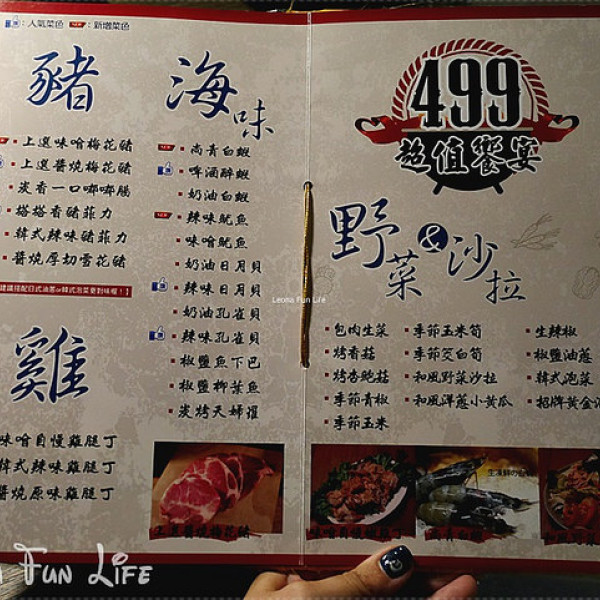 ：人氣菜色 NEW：新增菜色
豬
上選味噌梅花豬
上選醬燒梅花豬
炭香一口嘟嘟腸
搭搭香豬菲力
韓式辣味豬菲力
醬燒厚切雪花豬
雞
味噌自慢雞腿丁
韓式辣味雞腿丁
醬燒原味雞腿丁
海味
尚青白蝦
啤酒醉蝦
奶油白蝦
辣味魷魚
味噌魷魚
奶油日月貝
辣味日月貝
奶油孔雀貝
辣味孔雀貝
椒鹽魚下巴
椒鹽柳葉魚
炭烤天婦羅
上選醬燒梅花豬
499
超值饗宴
野菜&沙拉
包肉生菜
烤香菇
烤杏鮑菇
季節青椒
季節玉米
季節玉米筍
季節茭白筍
和風野菜沙拉
和風洋蔥小黃瓜
生辣椒
椒鹽油蔥
韓式泡菜
招牌黃金
味噌自慢雞腿丁
尚青白蝦
Leona Fun Life
Fun Life